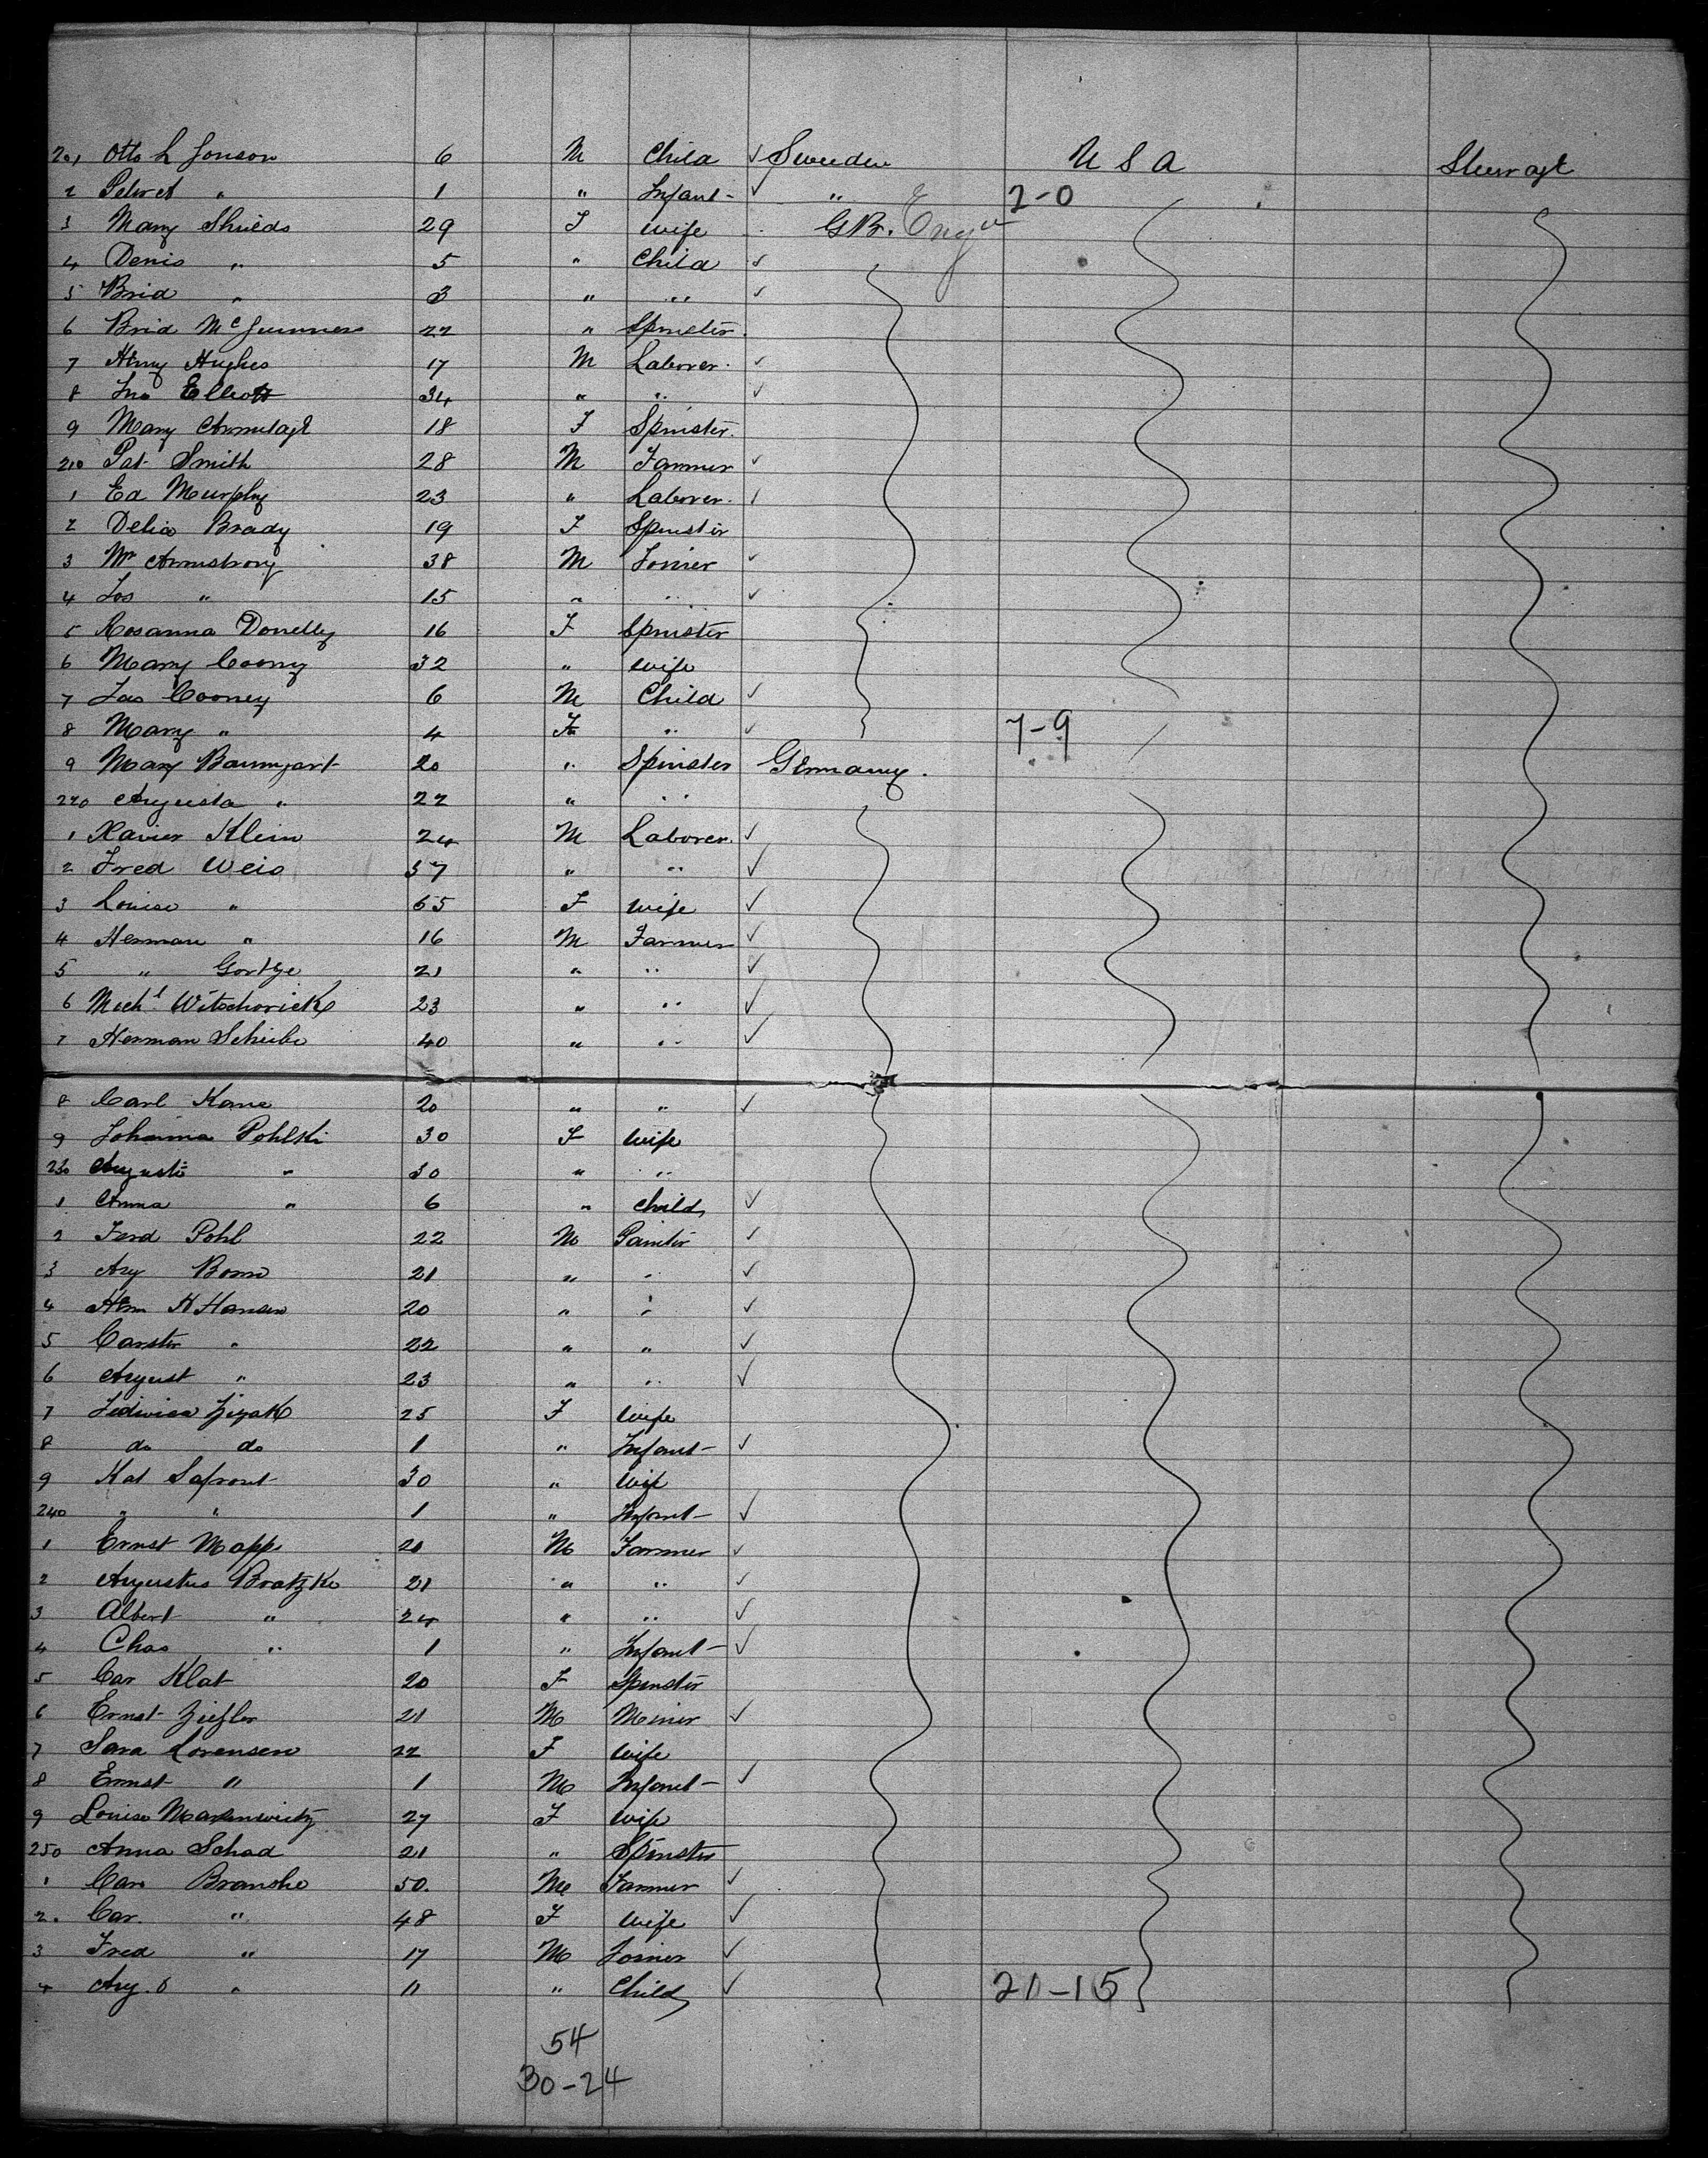 201 Otto L Jonson 6 M Child ✓ Sweden U S A Steerage
2 " 1 " Infant - ✓ " 2-0
3 Mary Shields 29 F wife G Br. Eng
4 Denis " 5 " Child ✓
5 Brid " 3 " " ✓
6 Brid 22 " Spinster
7 Henry Hughes 17 M Laborer ✓
8 Jno Elliott 34 " " ✓
9 Mary Armitage 18 F Spinster
210 Pat Smith 28 M Farmer ✓
1 Ed Murphy 23 " Laborer ✓
2 Delia Brady 19 F Spinster
3 Wm Armstrong 38 M Joiner ✓
4 Jos " 15 " " ✓
5 Rosanna Donelly 16 F Spinster
6 Mary Coony 32 " wife
7 Jas Cooney 6 M Child ✓
8 Mary " 4 F " ✓ 7-9
9 Mary Baumgart 20 " Spinster Germany.
220 Augusta " 22 " "
1 Xavier Klein 24 M Laborer ✓
2 Fred Weis 37 " " ✓
3 Louise " 65 F wife ✓
4 Herman " 16 M Farmer ✓
5 " 21 " " ✓
6 Mich'l Witschoricke 23 " " ✓
7 Herman Scheibe 40 " " ✓
8 Carl Kane 20 " " ✓
9 Johanna Pohlski 30 F wife
230 Auguste " 30 " "
1 Anna " 6 " child ✓
2 Ferd Pohl 22 M Painter ✓
3 Aug 21 " " ✓
4 H Hansen 20 " " ✓
5 Carsten " 22 " " ✓
6 August " 23 " " ✓
7 25 F wife
8 do do 1 " Infant - ✓
9 Kat 30 " wife
240 " " 1 " Infant - ✓
1 Ernst Mapp 21 M Farmer ✓
2 Augustus Bratzke 21 " " ✓
3 Albert " 24 " " ✓
4 Chas " 1 " Infant - ✓
5 Car Klat 20 F Spinster
6 Ernst Ziegler 21 M Miner ✓
7 Sara Lorensen 22 F wife
8 Ernst " 1 M Infant - ✓
9 Louise 27 F wife
250 Anna Schad 21 " Spinster
1 Car Branske 50. M Farmer ✓
2. Car. " 48 F wife ✓
3 Fred " 17 M Joiner ✓
4 Aug. " 11 " Child ✓ 21-15
54
30-24